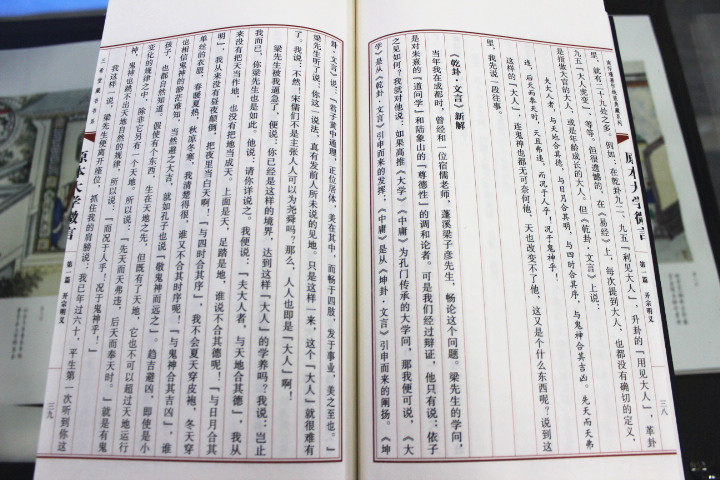 原本大学微言
第一篇 开宗明义
三八
里，就有二十九处之多。例如，在乾卦九二、九五「利见大人」，升卦的「用见大人」，革卦
九五「大人虎变」，等等。但很遗憾的，在《易经》上，每次提到大人，也都没有确切的定义，
是指做大官的大人，或是年龄成长的大人。但《乾卦·文言》上说：
夫大人者，与天地合其德，与日月合其明，与四时合其序，与鬼神合其吉凶。先天而天弗
违，后天而奉天时。天且弗违，而况于人乎，况于鬼神乎！
这样的「大人」，连鬼神也都无可奈何他，天也改变不了他，这又是个什么东西呢？说到这
里，我先说一段往事
《乾卦·文言》新解
当年我在成都时，曾经和一位宿儒老师，蓬溪梁子彦先生，畅论这个问题。梁先生的学问，
是对朱熹的「道问学」和陆象山的「尊德性」的调和论者。可是我们经过辩证，他只有说：依子
之见如何？我就对他说：如果高推《大学》《中庸》为孔门传承的大学问，那我便可说，《大
学》是从《乾卦·文言》引申而来的发挥，《中庸》是从《坤卦·文言》引申而来的阐扬。《坤
卦·文言》说：「君子黄中通理，正位居体，美在其中，而畅于四肢，发于事业，美之至也。」
梁先生听了说，你这一说法，真有发前人所未说的见地。只是这样一来，这个「大人」就很难有
了。我说：不然！宋儒们不是主张人人可以为尧舜吗？那么，人人也即是「大人」啊！
梁先生被我逼急了，便说：你已经是这样的境界，达到这样「大人」的学养吗？我说：岂止
我而已，你梁先生也是如此。他说：请你详说之。我便说：「夫大人者，与天地合其德」，我从
来没有把天当作地，也没有把地当成天。上面是天，足踏是地，谁说不合其德呢！「与日月合其
明」，我从来没有昼夜颠倒，把夜里当白天啊！「与四时合其序」，我不会夏天穿皮袍，冬天穿
单丝的衣服，春暖夏热，秋凉冬寒，我清楚得很，谁又不合其时序呢！「与鬼神合其吉凶」，谁
也相信鬼神的渺茫难知，当然避之大吉，就如孔子也说「敬鬼神而远之」。趋吉避凶，即使是小
孩子，也都自然知道。假使有个东西，生在天地之先，但既有了天地，它也不可以超过天地运行
变化的规律之中，除非它另有一个天地。所以说：「先天而天弗违，后天而奉天时。」就是有鬼
神，鬼神也跳不出天地自然的规律，所以说：「而况于人乎！况于鬼神乎！」
我这样一说，梁先生便离开座位，抓住我的肩膀说：我已年过六十，平生第一次听到你这
原本大学微言
第一篇 开宗明义
三九